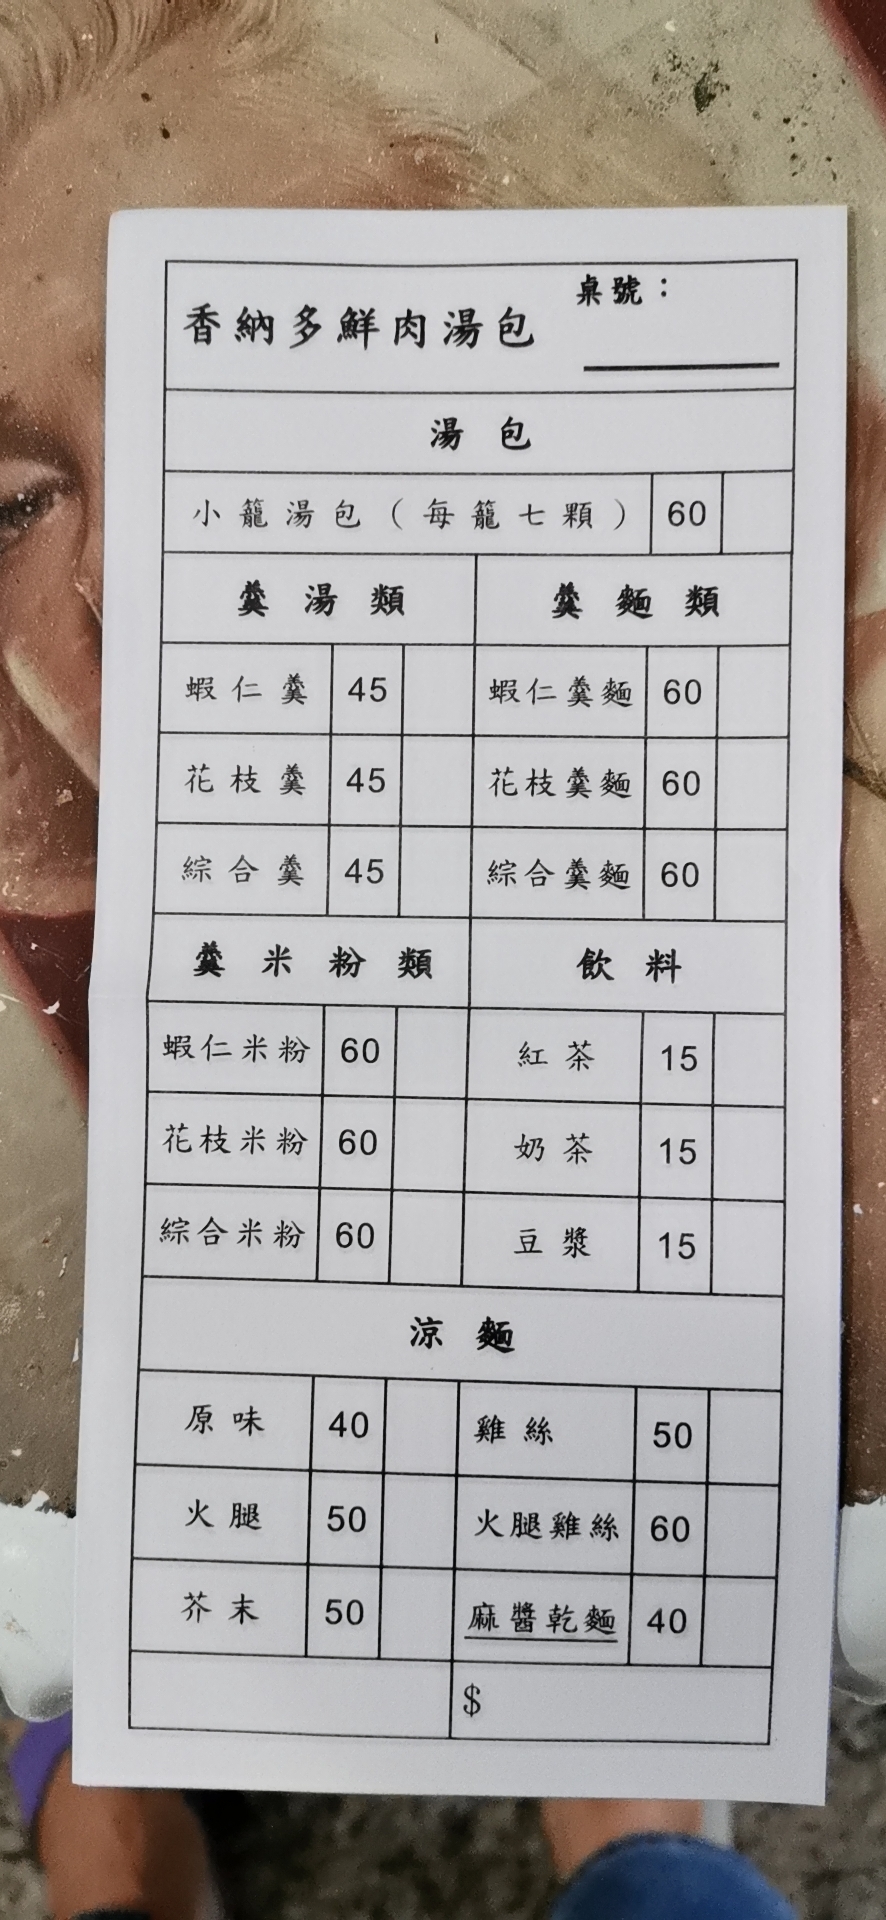 香納多鮮肉湯包 桌號：
湯包
小籠湯包（每籠七顆） 60
羹湯類 羹麵類
蝦仁羹 45 蝦仁羹麵 60
花枝羹 45 花枝羹麵 60
綜合羹 45 綜合羹麵 60
羹米粉類 飲料
蝦仁米粉 60 紅茶 15
花枝米粉 60 奶茶 15
綜合米粉 60 豆漿 15
涼麵
原味 40 雞絲 50
火腿 50 火腿雞絲 60
芥末 50 麻醬乾麵 40
$